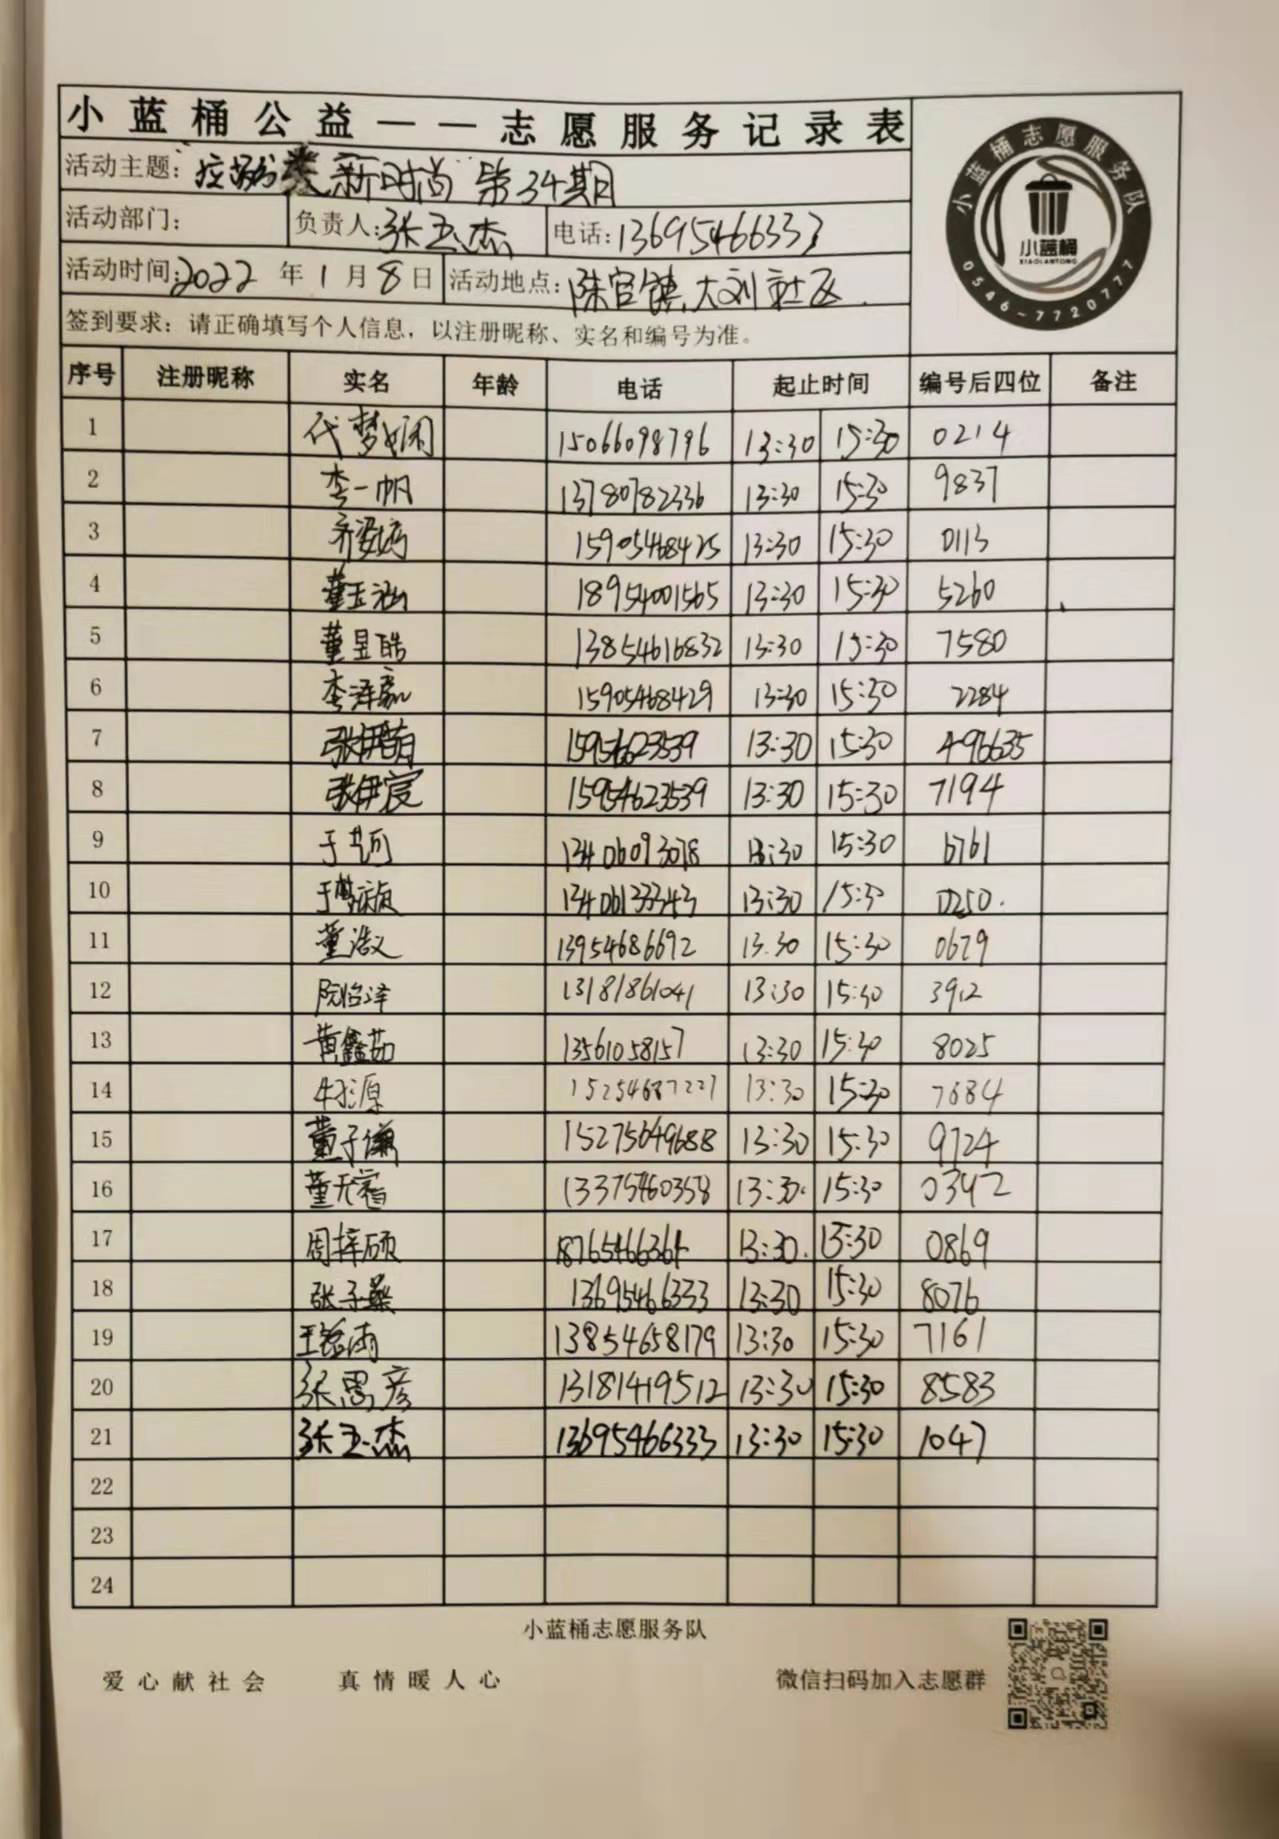 小蓝桶公益——志愿服务记录表
小蓝桶志愿服务队
小蓝桶
XIAOLANTONG
0546-7720777
活动主题: 新时尚" 第34期
活动部门: 负责人:张玉杰 电话:13695466333
活动时间:2022年1月8日 活动地点:陈官镇大刘社区.
签到要求: 请正确填写个人信息, 以注册昵称、实名和编号为准。
序号 注册昵称 实名 年龄 电话 起止时间 编号后四位 备注
1 代梦娴 15066098796 13:30 15:30 0214
2 李一帆 13780782336 13:30 15:30 9837
3 15905468425 13:30 15:30 0113
4 董玉涵 18954001565 13:30 15:30 5260
5 董昱皓 13854616832 13:30 15:30 7580
6 李泽嘉 15905468429 13:30 15:30 2284
7 15954623539 13:30 15:30 496635
8 张伊宸 15954623539 13:30 15:30 7194
9 13406093078 13:30 15:30 6761
10 13406133343 13:30 15:30 0250.
11 董浩义 13954686692 13:30 15:30 0679
12 13181861041 13:30 15:30 3912
13 黄鑫茹 13561058157 13:30 15:30 8025
14 15254687227 13:30 15:30 7684
15 董子谦 15275649688 13:30 15:30 9724
16 13375460358 13:30. 15:30 0342
17 周梓硕 18765466361 13:30. 15:30 0869
18 13695466333 13:30 15:30 8076
19 13854658179 13:30 15:30 7161
20 张恩彦 13181419512 13:30 15:30 8583
21 张玉杰 13695466333 13:30 15:30 1047
22
23
24
小蓝桶志愿服务队
爱心献社会 真情暖人心 微信扫码加入志愿群